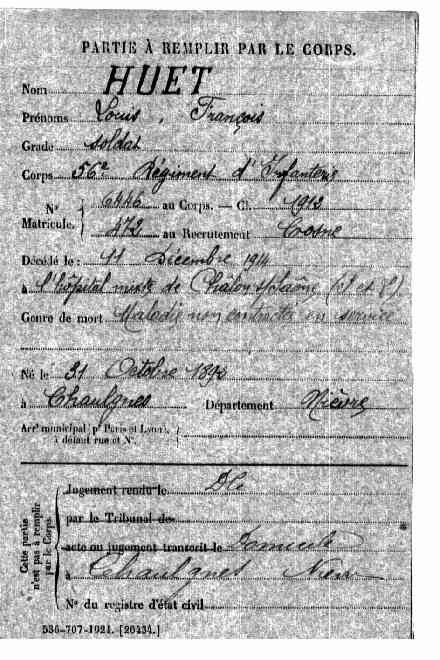 PARTIE À REMPLIR PAR LE CORPS.
Nom HUET
Prénoms Louis, François
Grade soldat
Corps 56e Régiment d'Infanterie
N° Matricule. 6446 au Corps. — Cl. 1913
472 au Recrutement Cosne
Décédé le 11 Décembre 1914
à l'hôpital mixte de Châlon s/ Saône (S et L)
Genre de mort Maladie non contractée en service
Né le 31 Octobre 1893
à Chaulgnes Département Nièvre
Arrt municipal (pr Paris et Lyon), à défaut rue et N°.
Cette partie n'est pas à remplir par le Corps.
Jugement rendu le DC
par le Tribunal de
acte ou jugement transcrit le Domicile
à Chaulgnes Nièvre
N° du registre d'état civil
536-707-1921. [26434.]